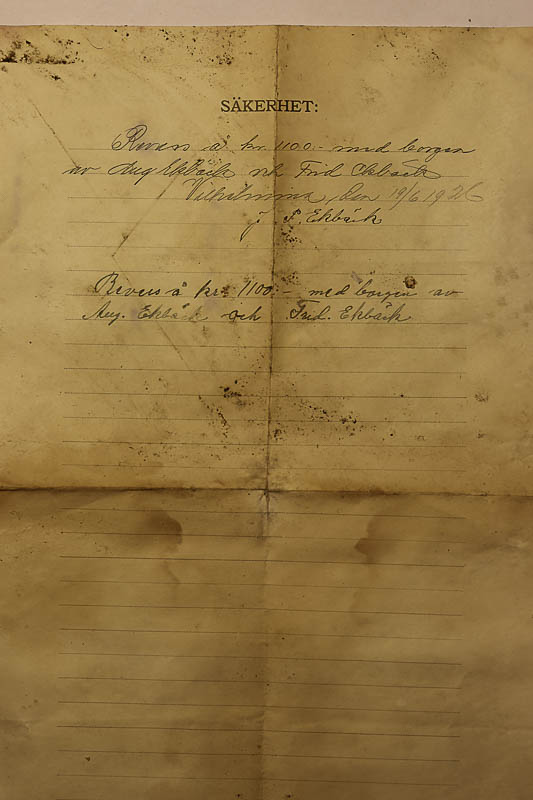 SÄKERHET:
Revers å kr. 1100:- med borgen
av Aug Ekbäck och Frid Ekbäck
Vilhelmina, den 19/6 1926
J. P. Ekbäck
Revers å kr. 1100:- med borgen av
Aug. Ekbäck och Frid. Ekbäck